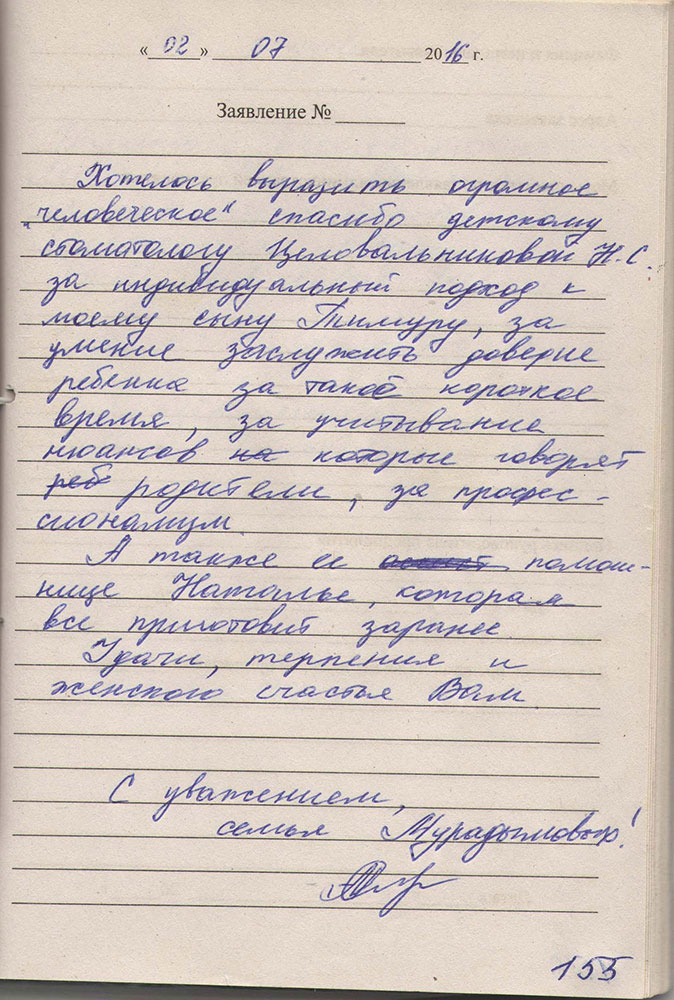 « 02 » 07 2016 г.
Заявление №
Хотелось выразить огромное
"человеческое" спасибо детскому
стоматологу Целовальниковой Н.С.
за индивидуальный подход к
моему сыну Тимуру, за
умение заслужить доверие
ребенка за такое короткое
время, за учитывание
нюансов на которые говорят
реб родители, за профес-
сионализм.
А также ее помощ-
нице Наталье, которая
все приготовит заранее.
Удачи, терпения и
женского счастья Вам.
С уважением,
семья Мурадымовых!
155